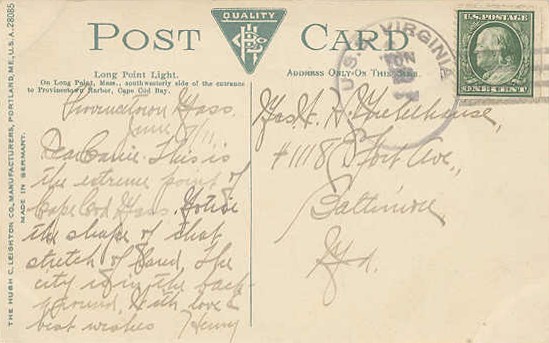 POST CARD
QUALITY
Long Point Light.
On Long Point, Mass., southwesterly side of the entrance
to Provincetown Harbor, Cape Cod Bay.
ADDRESS ONLY ON THIS SIDE.
THE HUGH C. LEIGHTON CO., MANUFACTURERS, PORTLAND, ME., U.S.A. 28085
MADE IN GERMANY.
U.S.S. VIRGINIA
U.S. POSTAGE
ONE CENT
Provincetown Mass.
June /11
Dear Carrie. This is
the extreme point of
Cape Cod Mass. Notice
the shape of that
stretch of land. The
city is in the back-
ground. With love &
best wishes Henry
#1118 Fort Ave.,
Baltimore
Md.